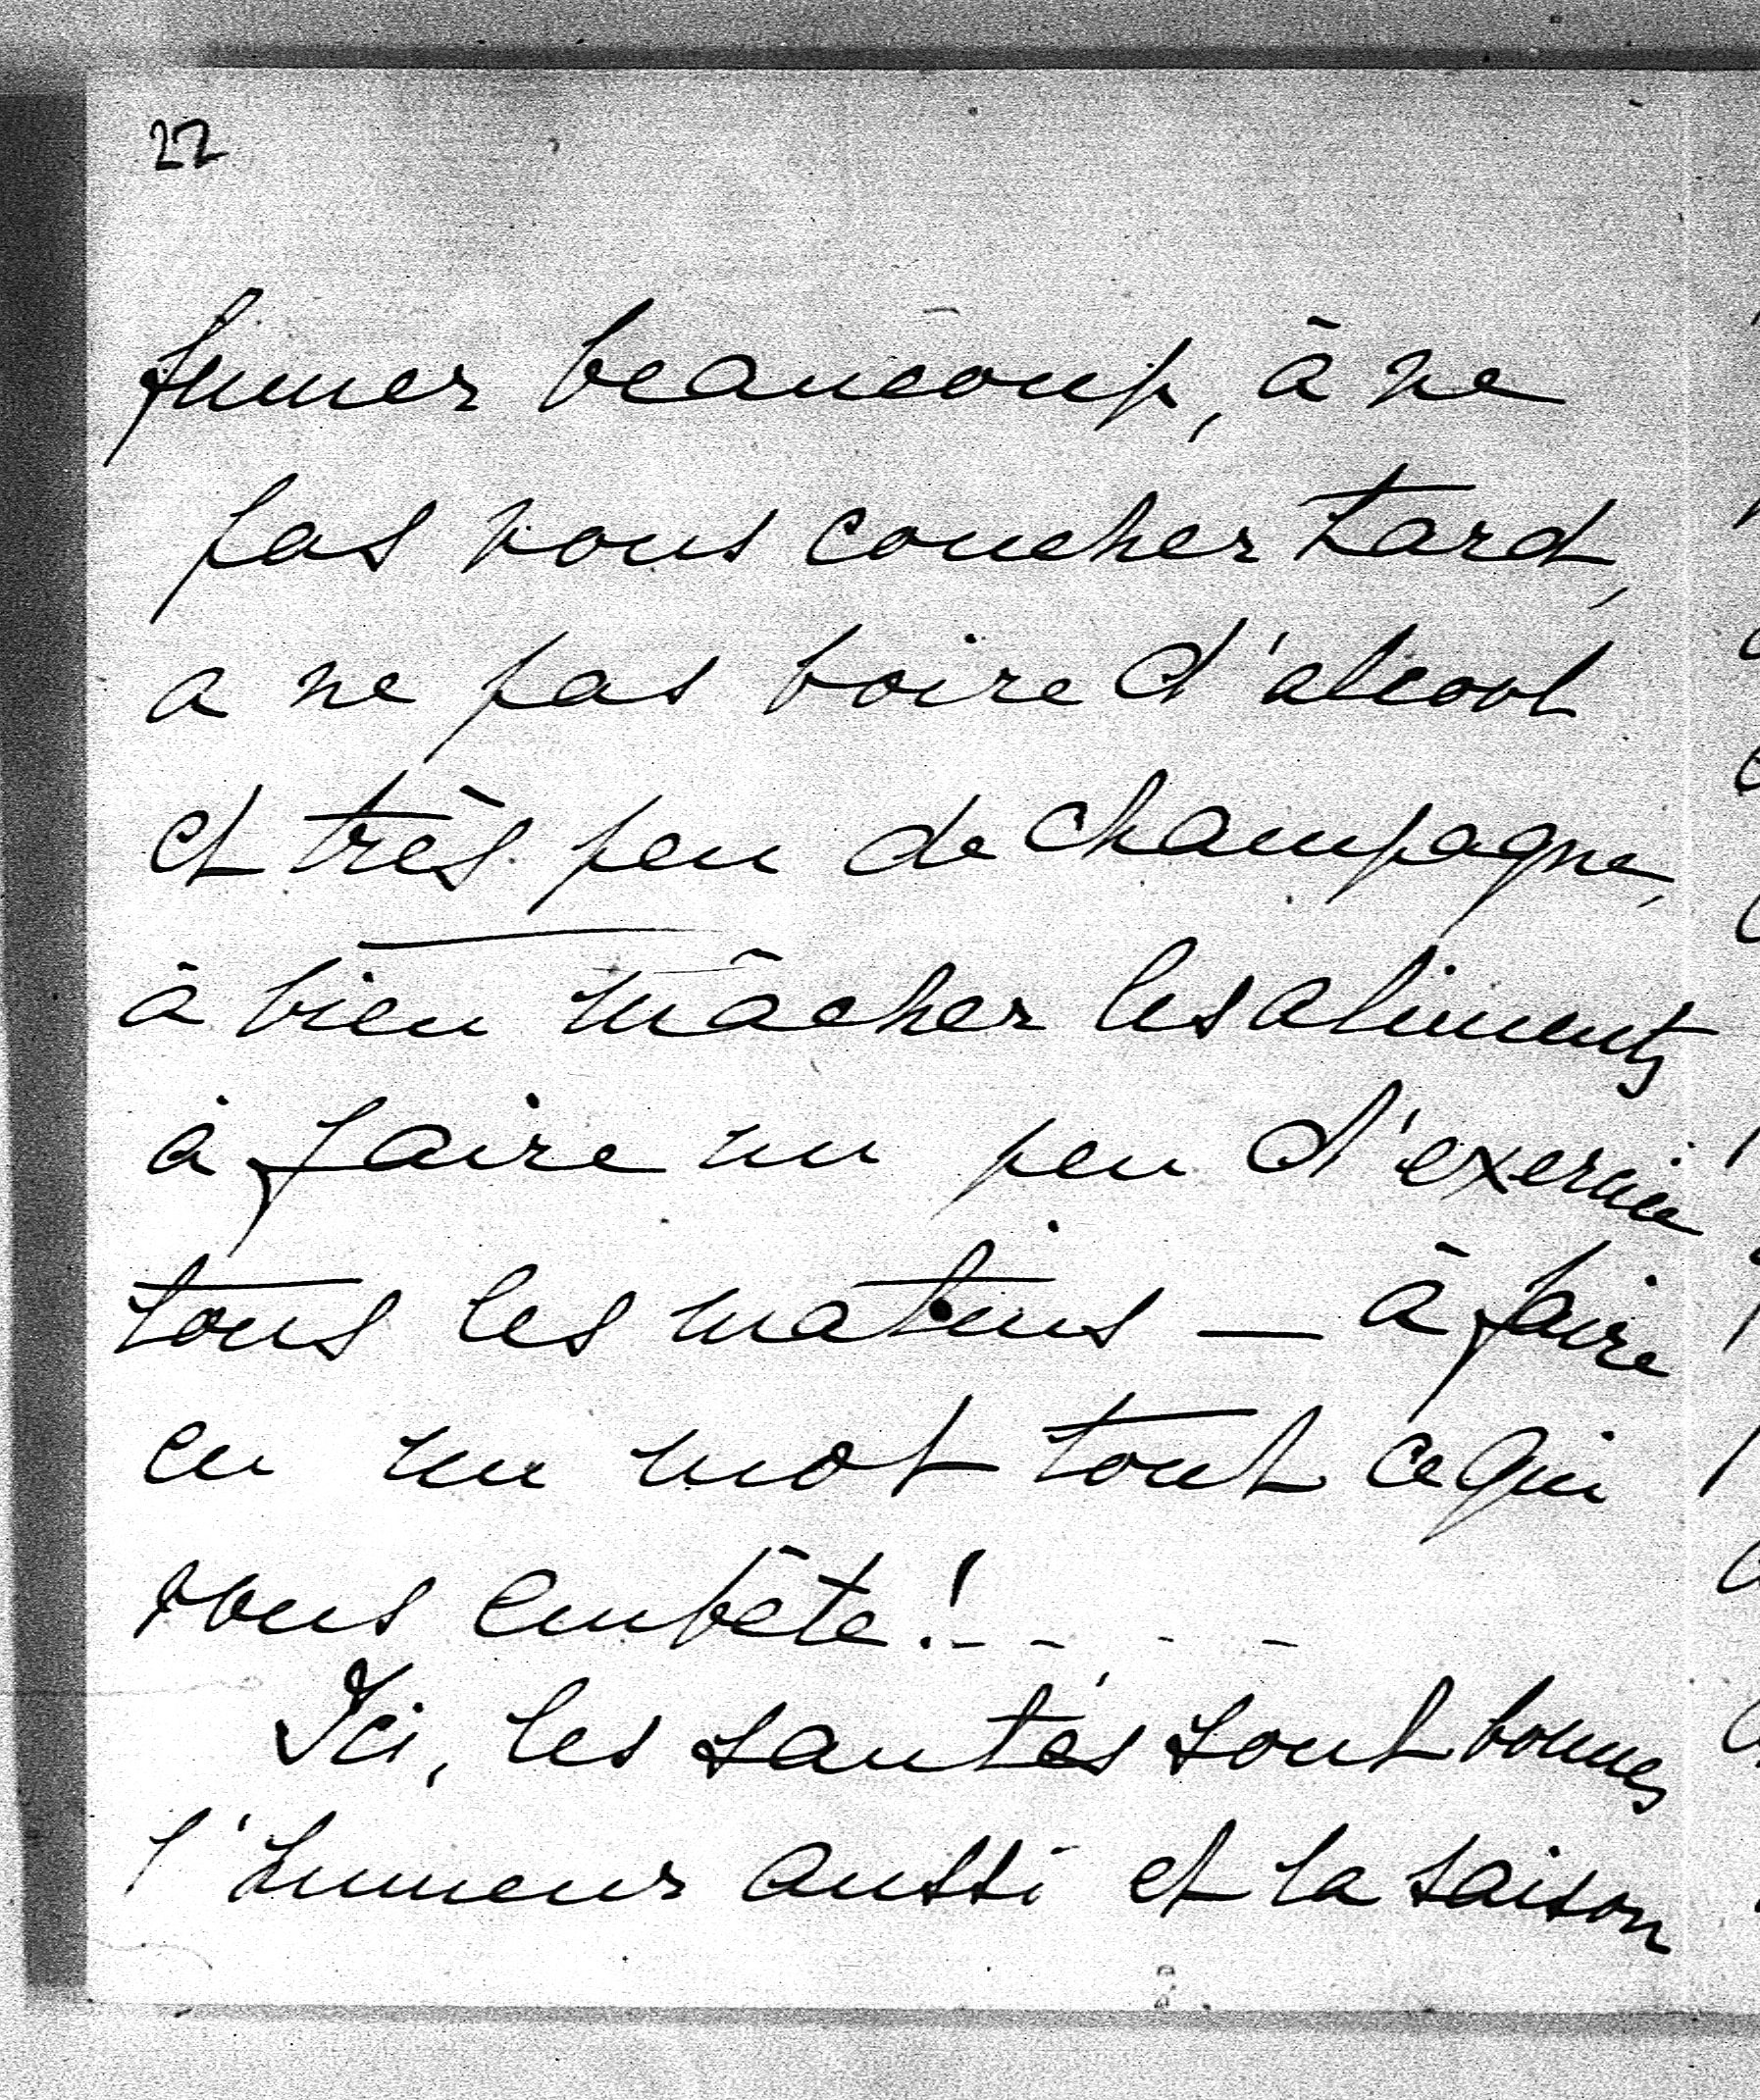 22
fumer beaucoup, à ne
pas vous coucher tard,
a ne pas boire d'alcool
et très peu de champagne,
à bien mâcher les aliments
à faire un peu d'exercice
tous les matins — à faire
en un mot tout ce qui
vous embête! - - - -
Ici, les santés sont bonnes
l'humeur aussi et la saison